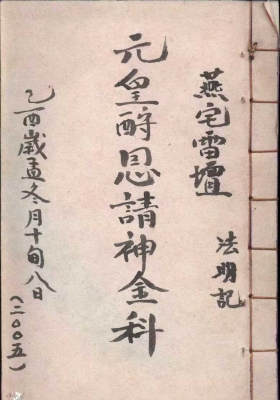 燕宅雷壇
法明記
元皇酧恩請神金科
乙酉歲孟冬月十旬八日
(二〇〇五)